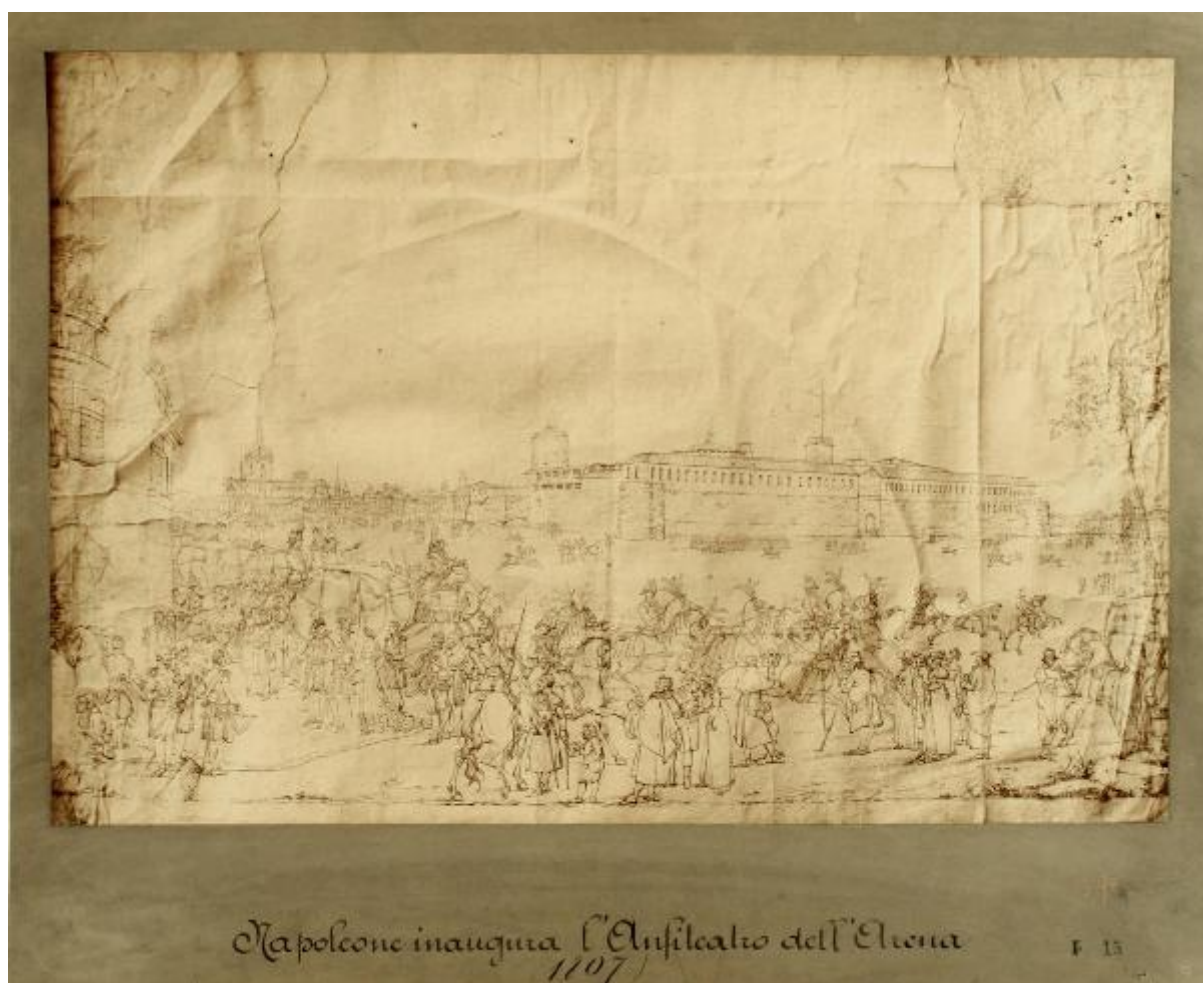 Napoleone inaugura l'Anfiteatro dell'Arena
1807
F 15